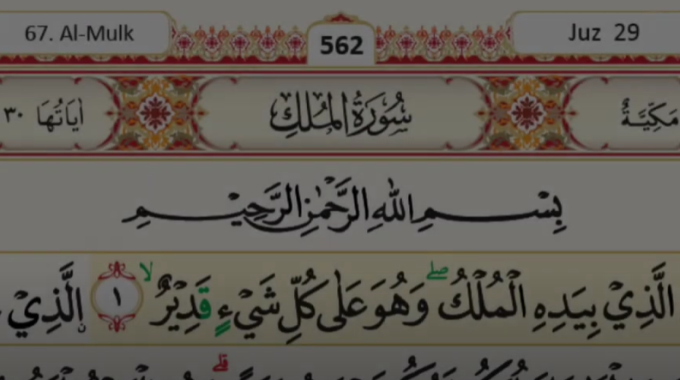 67. Al-Mulk 562 Juz 29
مَكِّيَّةٌ سُوْرَةُ الْمُلْكِ اٰيَاتُهَا ٣٠
بِسْمِ اللّٰهِ الرَّحْمٰنِ الرَّحِيْمِ
الَّذِيْ بِيَدِهِ الْمُلْكُ ۖ وَهُوَ عَلٰى كُلِّ شَيْءٍ قَدِيْرٌ ۙ ١ ۨالَّذِيْ